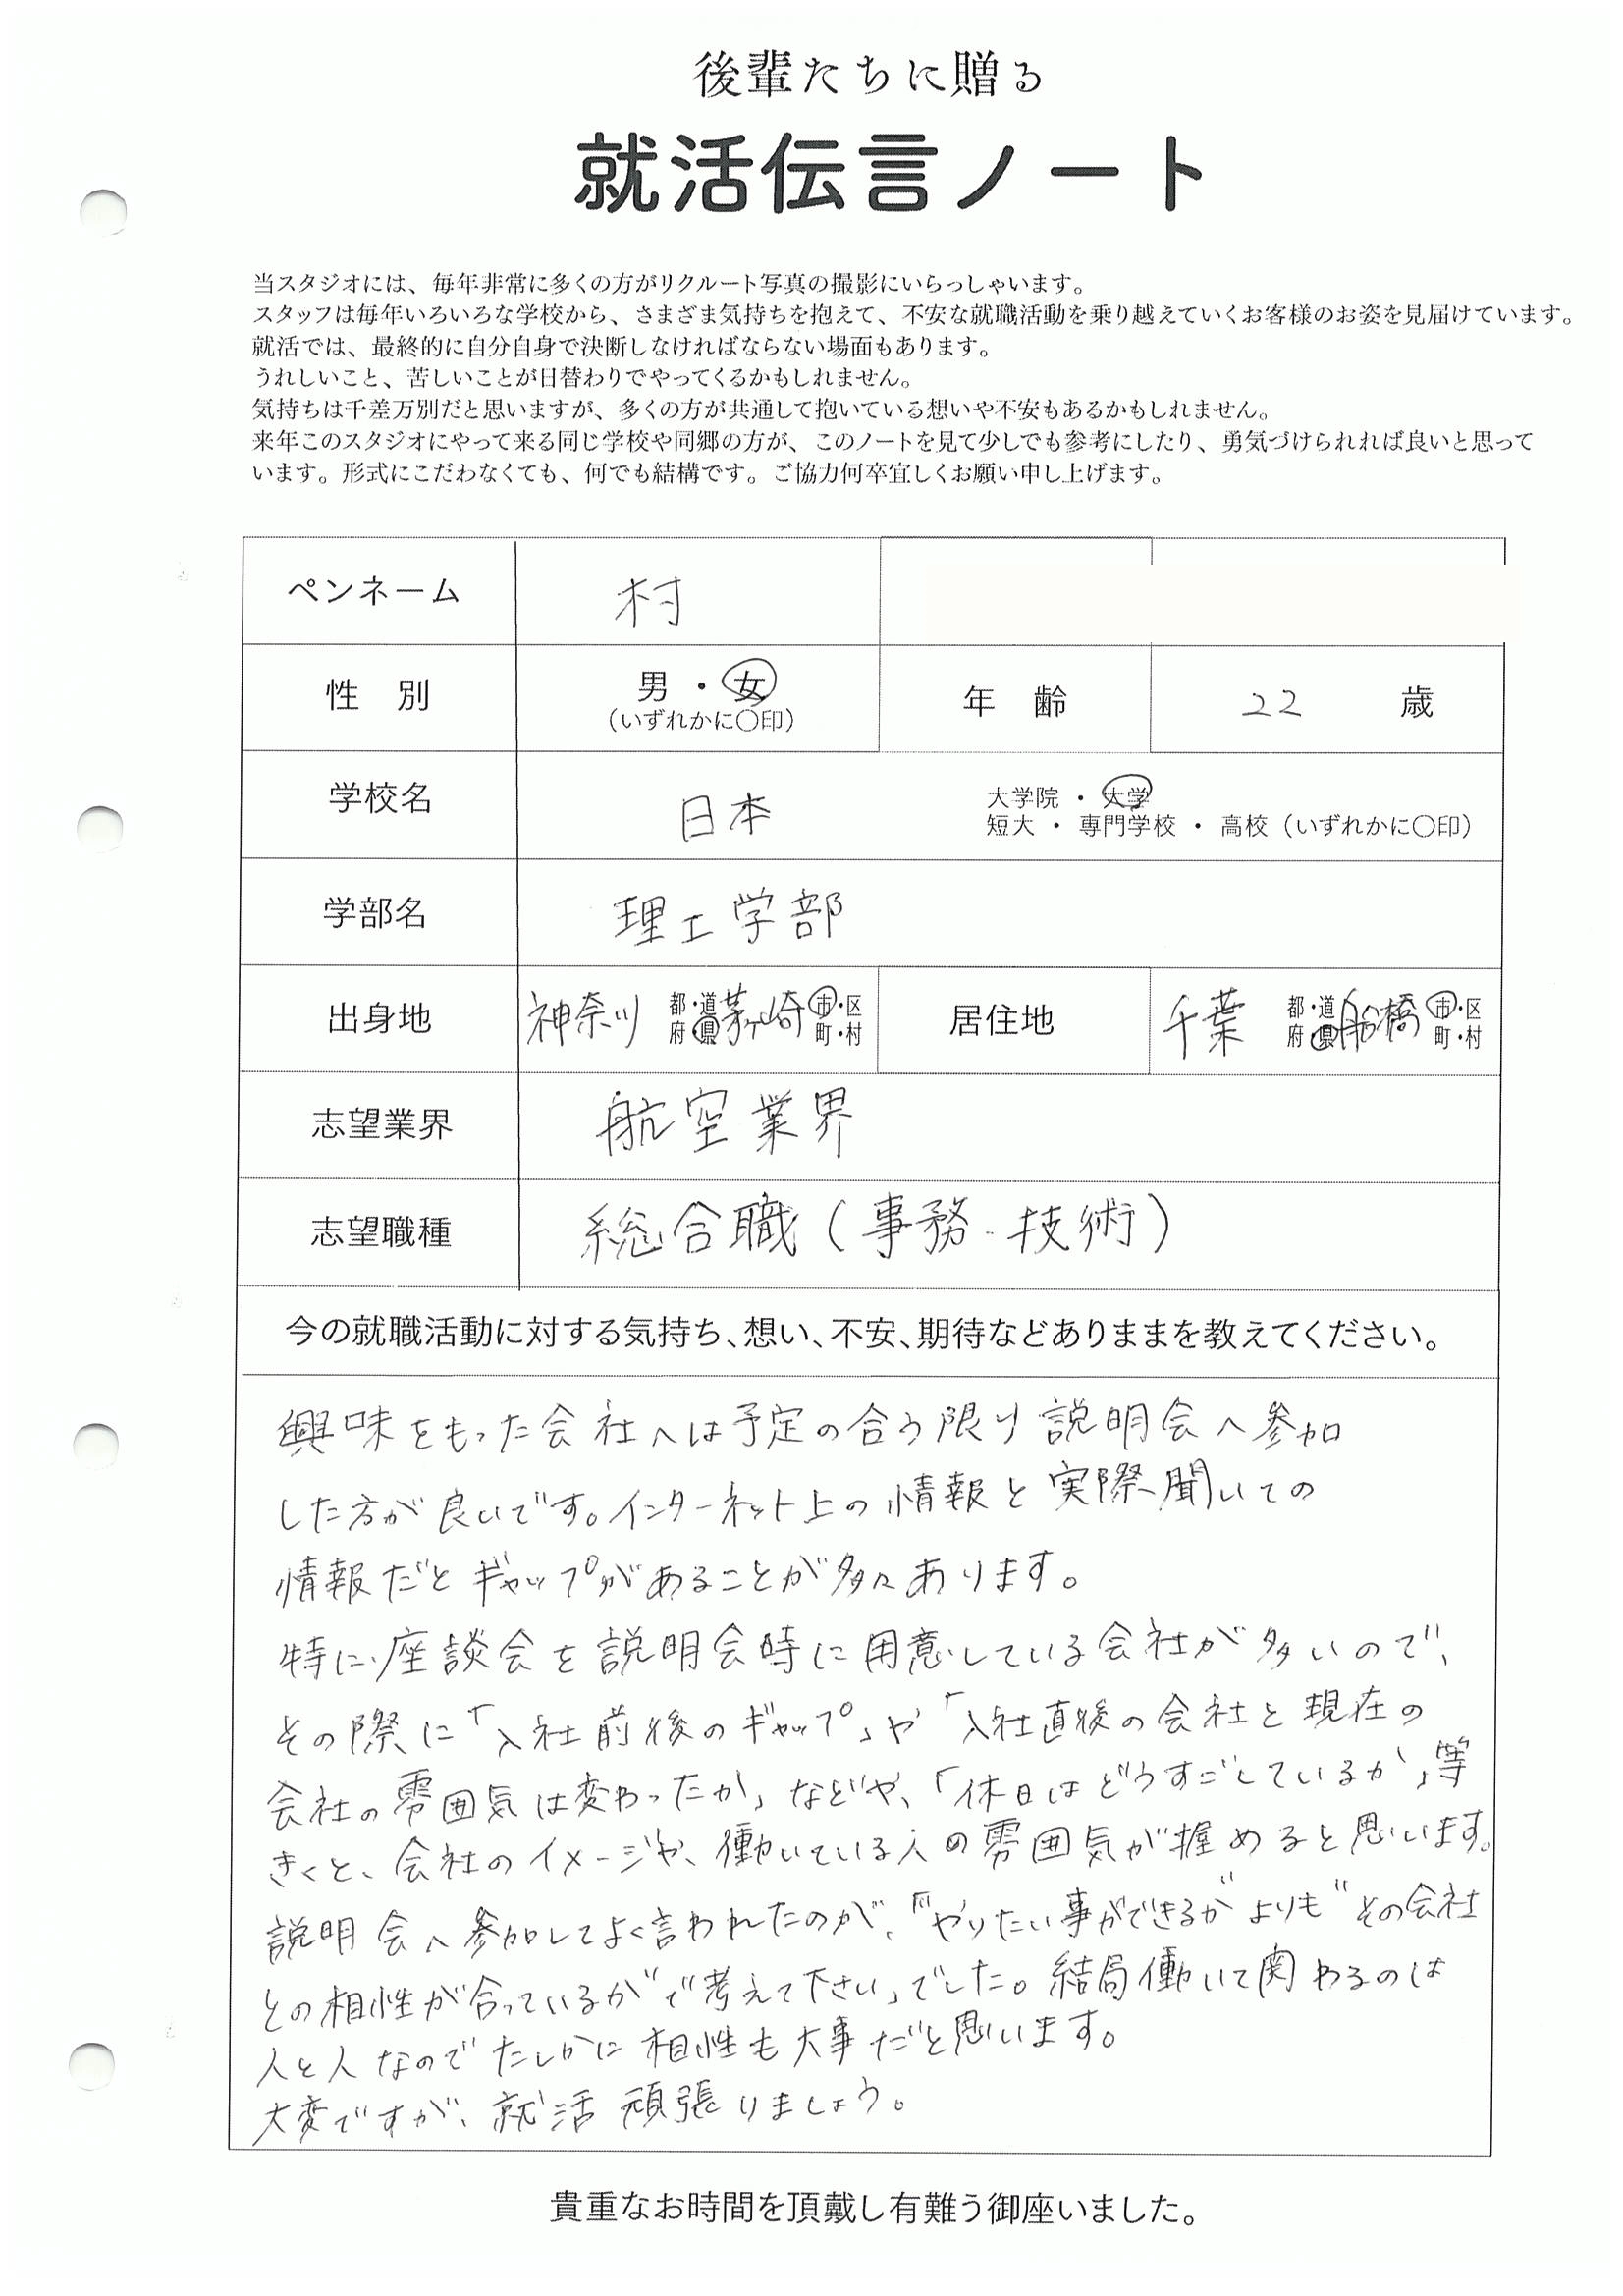 後輩たちに贈る
就活伝言ノート
当スタジオには、毎年非常に多くの方がリクルート写真の撮影にいらっしゃいます。
スタッフは毎年いろいろな学校から、さまざま気持ちを抱えて、不安な就職活動を乗り越えていくお客様のお姿を見届けています。
就活では、最終的に自分自身で決断しなければならない場面もあります。
うれしいこと、苦しいことが日替わりでやってくるかもしれません。
気持ちは千差万別だと思いますが、多くの方が共通して抱いている想いや不安もあるかもしれません。
来年このスタジオにやって来る同じ学校や同郷の方が、このノートを見て少しでも参考にしたり、勇気づけられれば良いと思って
います。形式にこだわなくても、何でも結構です。ご協力何卒宜しくお願い申し上げます。
ペンネーム 村
性 別 男 ・ 女 (いずれかに〇印) 年 齢 22 歳
学校名 日本 大学院 ・ 大学
短大 ・ 専門学校 ・ 高校 (いずれかに〇印)
学部名 理工学部
出身地 神奈川 都・道府・県 茅ヶ崎 市・区町・村 居住地 千葉 都・道府・県 船橋 市・区町・村
志望業界 航空業界
志望職種 総合職(事務・技術)
今の就職活動に対する気持ち、想い、不安、期待などありままを教えてください。
興味をもった会社へは予定の合う限り説明会へ参加
した方が良いです。インターネット上の情報と実際聞いての
情報だとギャップがあることが多々あります。
特に、座談会を説明会時に用意している会社が多いので、
その際に「入社前後のギャップ」や「入社直後の会社と現在の
会社の雰囲気は変わったか」などや、「休日はどうすごしているか」等
きくと、会社のイメージや、働いている人の雰囲気が握めると思います。
説明会へ参加してよく言われたのが、『"やりたい事ができるか"よりも"その会社
との相性が合っているか"で考えて下さい」でした。結局働いて関わるのは
人と人なのでたしかに相性も大事だと思います。
大変ですが、就活頑張りましょう。
貴重なお時間を頂戴し有難う御座いました。